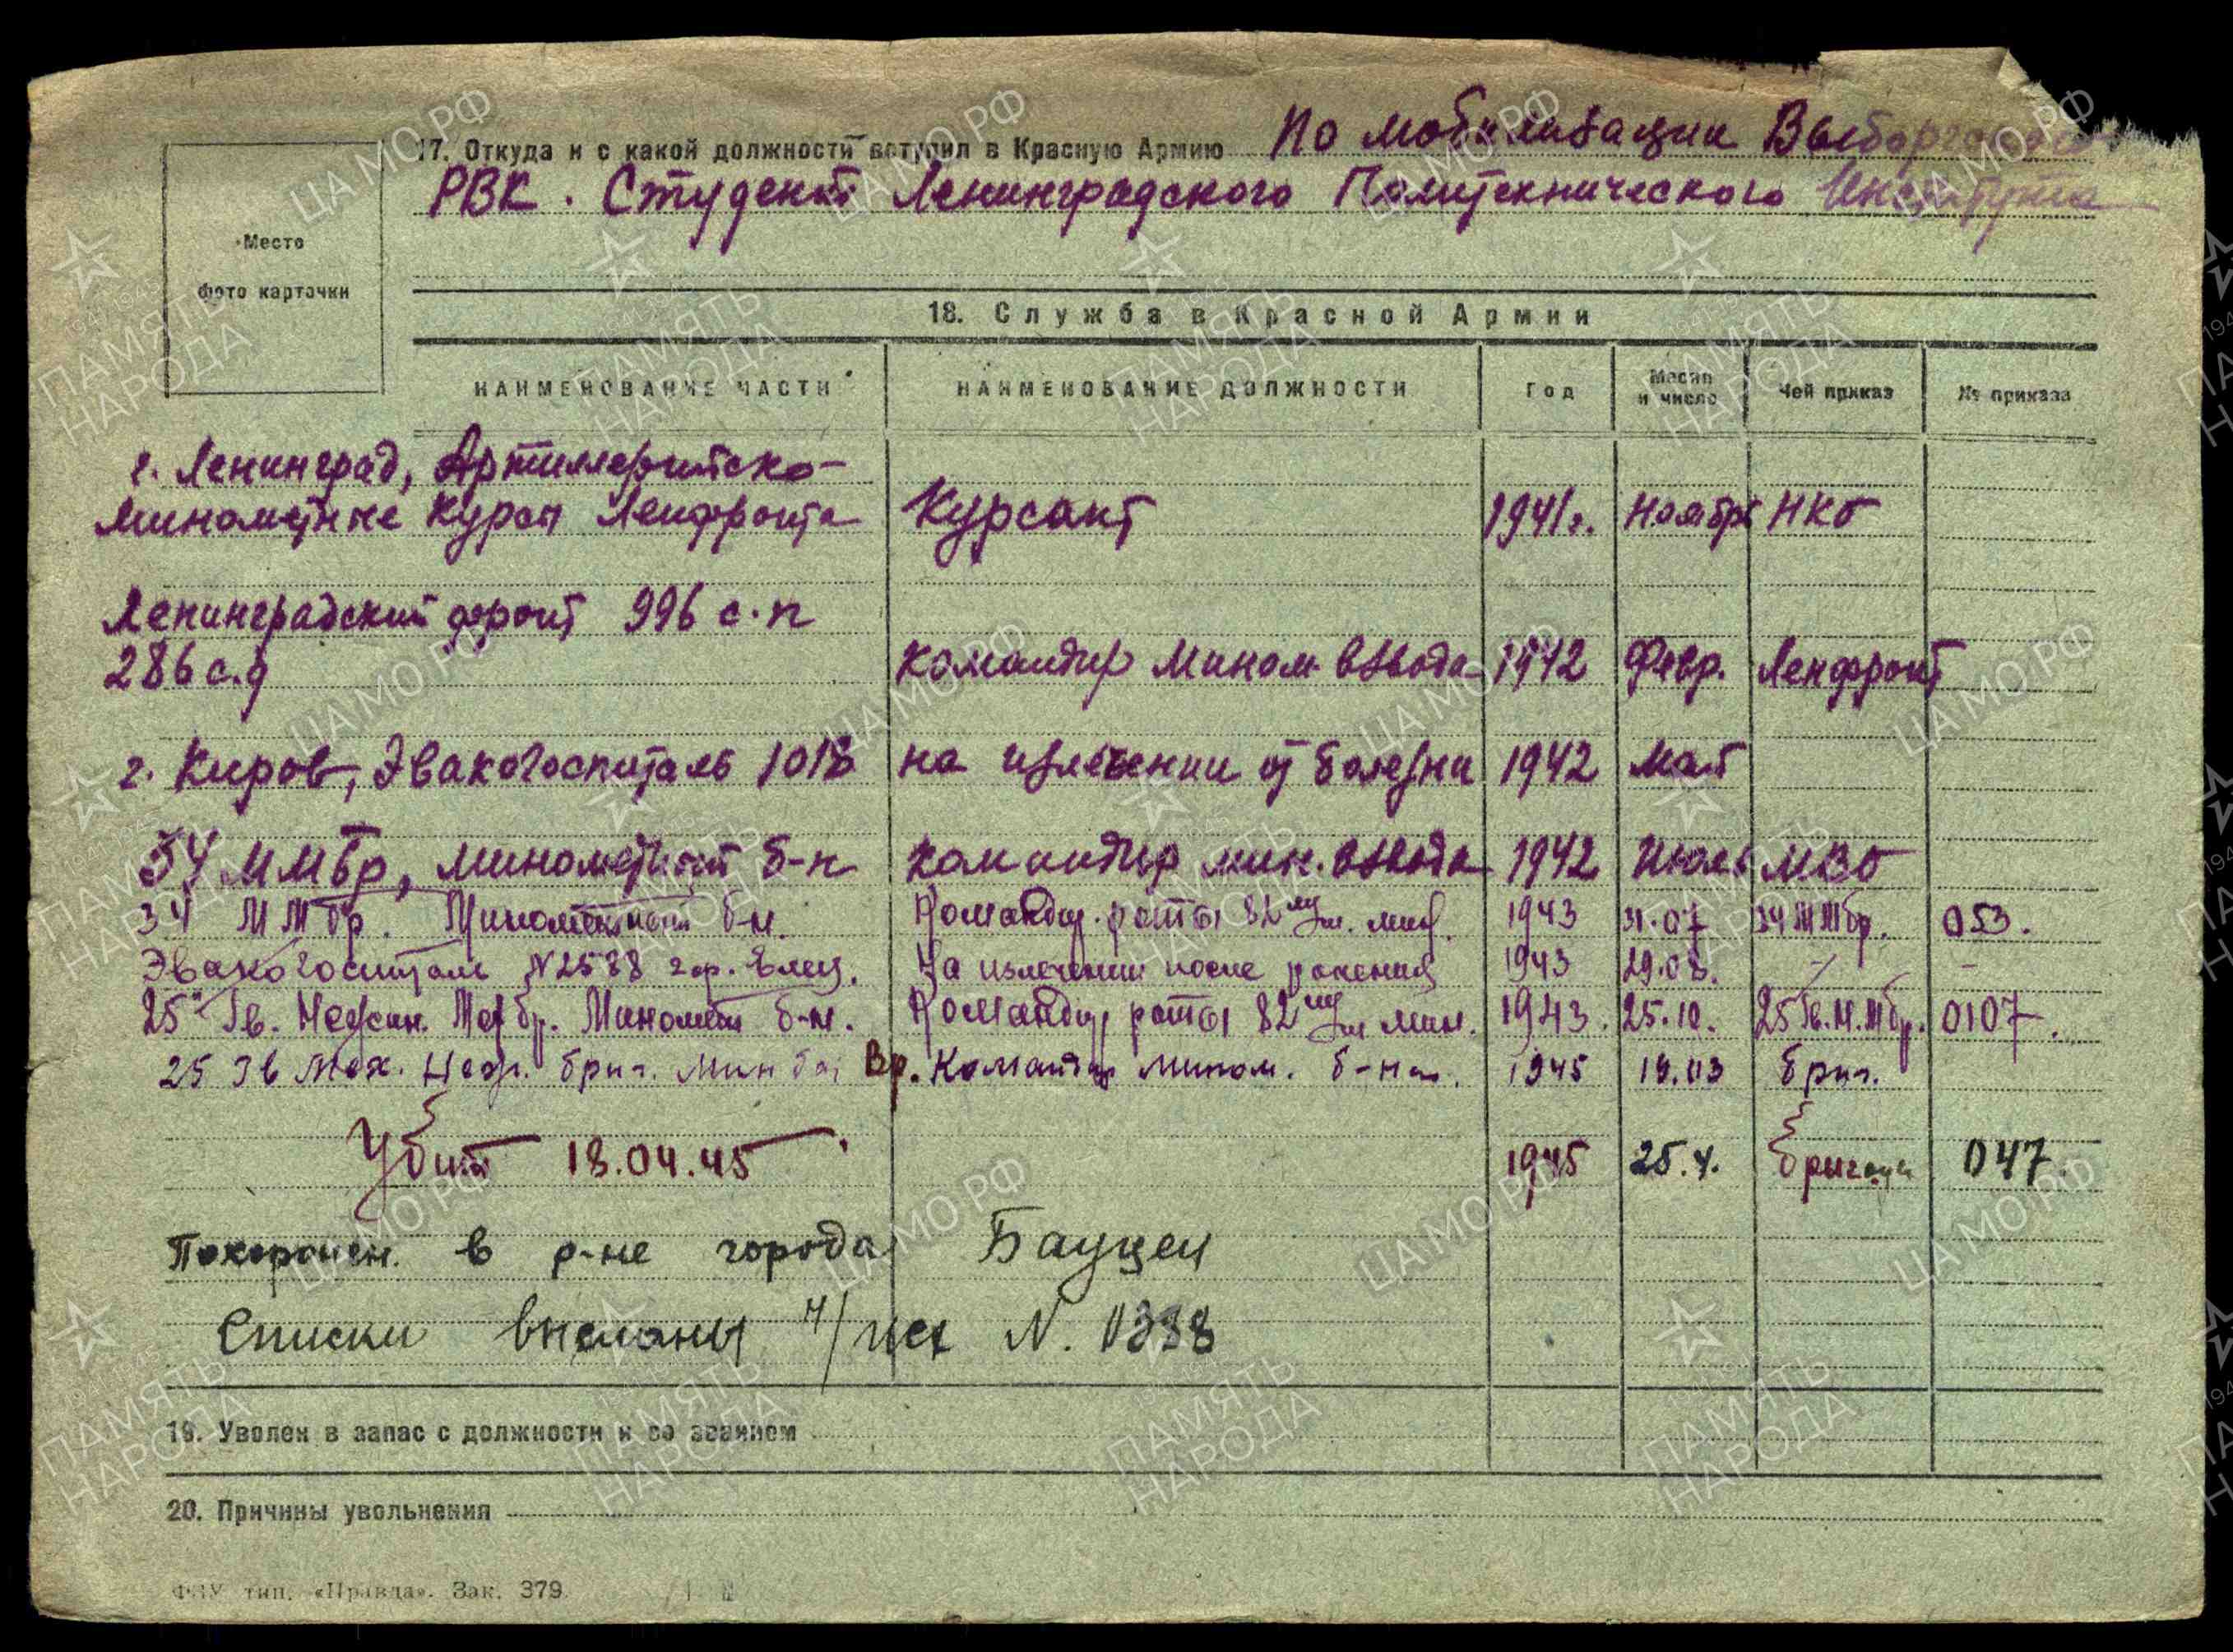 17. Откуда и с какой должности вступил в Красную Армию По мобилизации Выборгским
РВК. Студент Ленинградского Политехнического Института
Место
фото карточки
18. Служба в Красной Армии
НАИМЕНОВАНИЕ ЧАСТИ НАИМЕНОВАНИЕ ДОЛЖНОСТИ Год Месяц и число Чей приказ № приказа
г. Ленинград, Артиллерийско-
минометные курсы Ленфронта Курсант 1941г. Ноябрь НКО
Ленинградский фронт 996 с.п
286 с.д Командир мином. взвода 1942 Февр. Ленфронт
г. Киров, Эвакогоспиталь 1018 на излечении от болезни 1942 Май
34 ММбр, минометный б-н Командир мин. взвода 1942 Июль МВО
34 ММбр. Минометный б-н. Командир роты 82 м/м. мин. 1943 31.07 34 ММбр. 053.
Эвакогоспиталь N 2588 гор. Елец. На излечении после ранения 1943 29.08. – –
25 Гв. Механ. Бр. Миномет б-н. Командир роты 82 м/м мин. 1943. 25.10. 25 Гв. М. Мбр. 0107.
25 Гв Мех. бриг. Мин бат Вр. Командир мином. б-на. 1945 19.03 бриг.
Убит 18.04.45. 1945 25.4. бригады 047.
Похоронен. в р-не города Бауцен
Списки высланы N. 0338
19. Уволен в запас с должности и со званием
20. Причины увольнения
тип. «Правда». Зак. 379
ЦА МО РФ
1941-1945
ПАМЯТЬ
НАРОДА